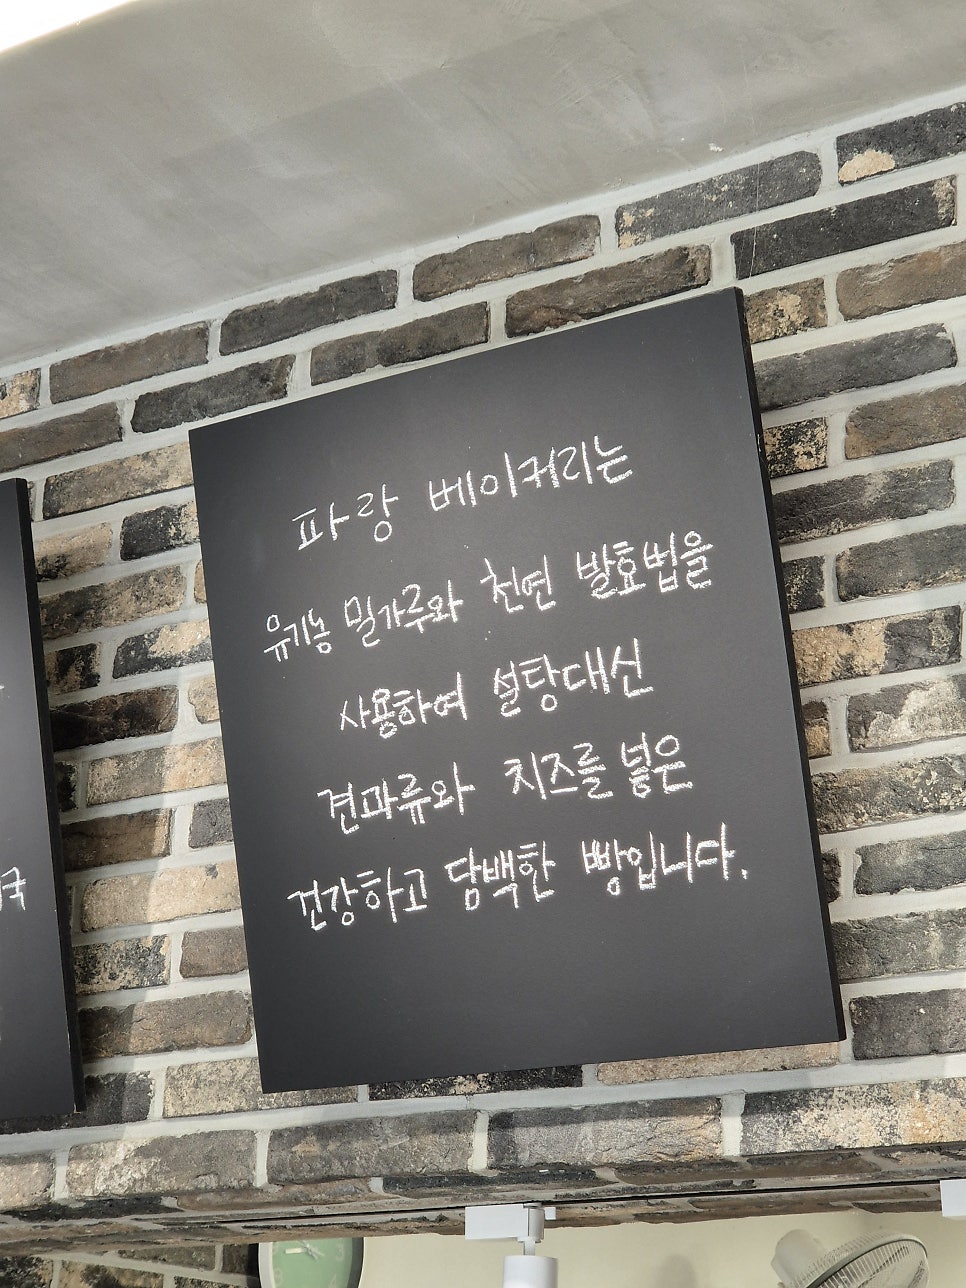 파랑 베이커리는
유기농 밀가루와 천연 발효법을
사용하여 설탕대신
견과류와 치즈를 넣은
건강하고 담백한 빵입니다.